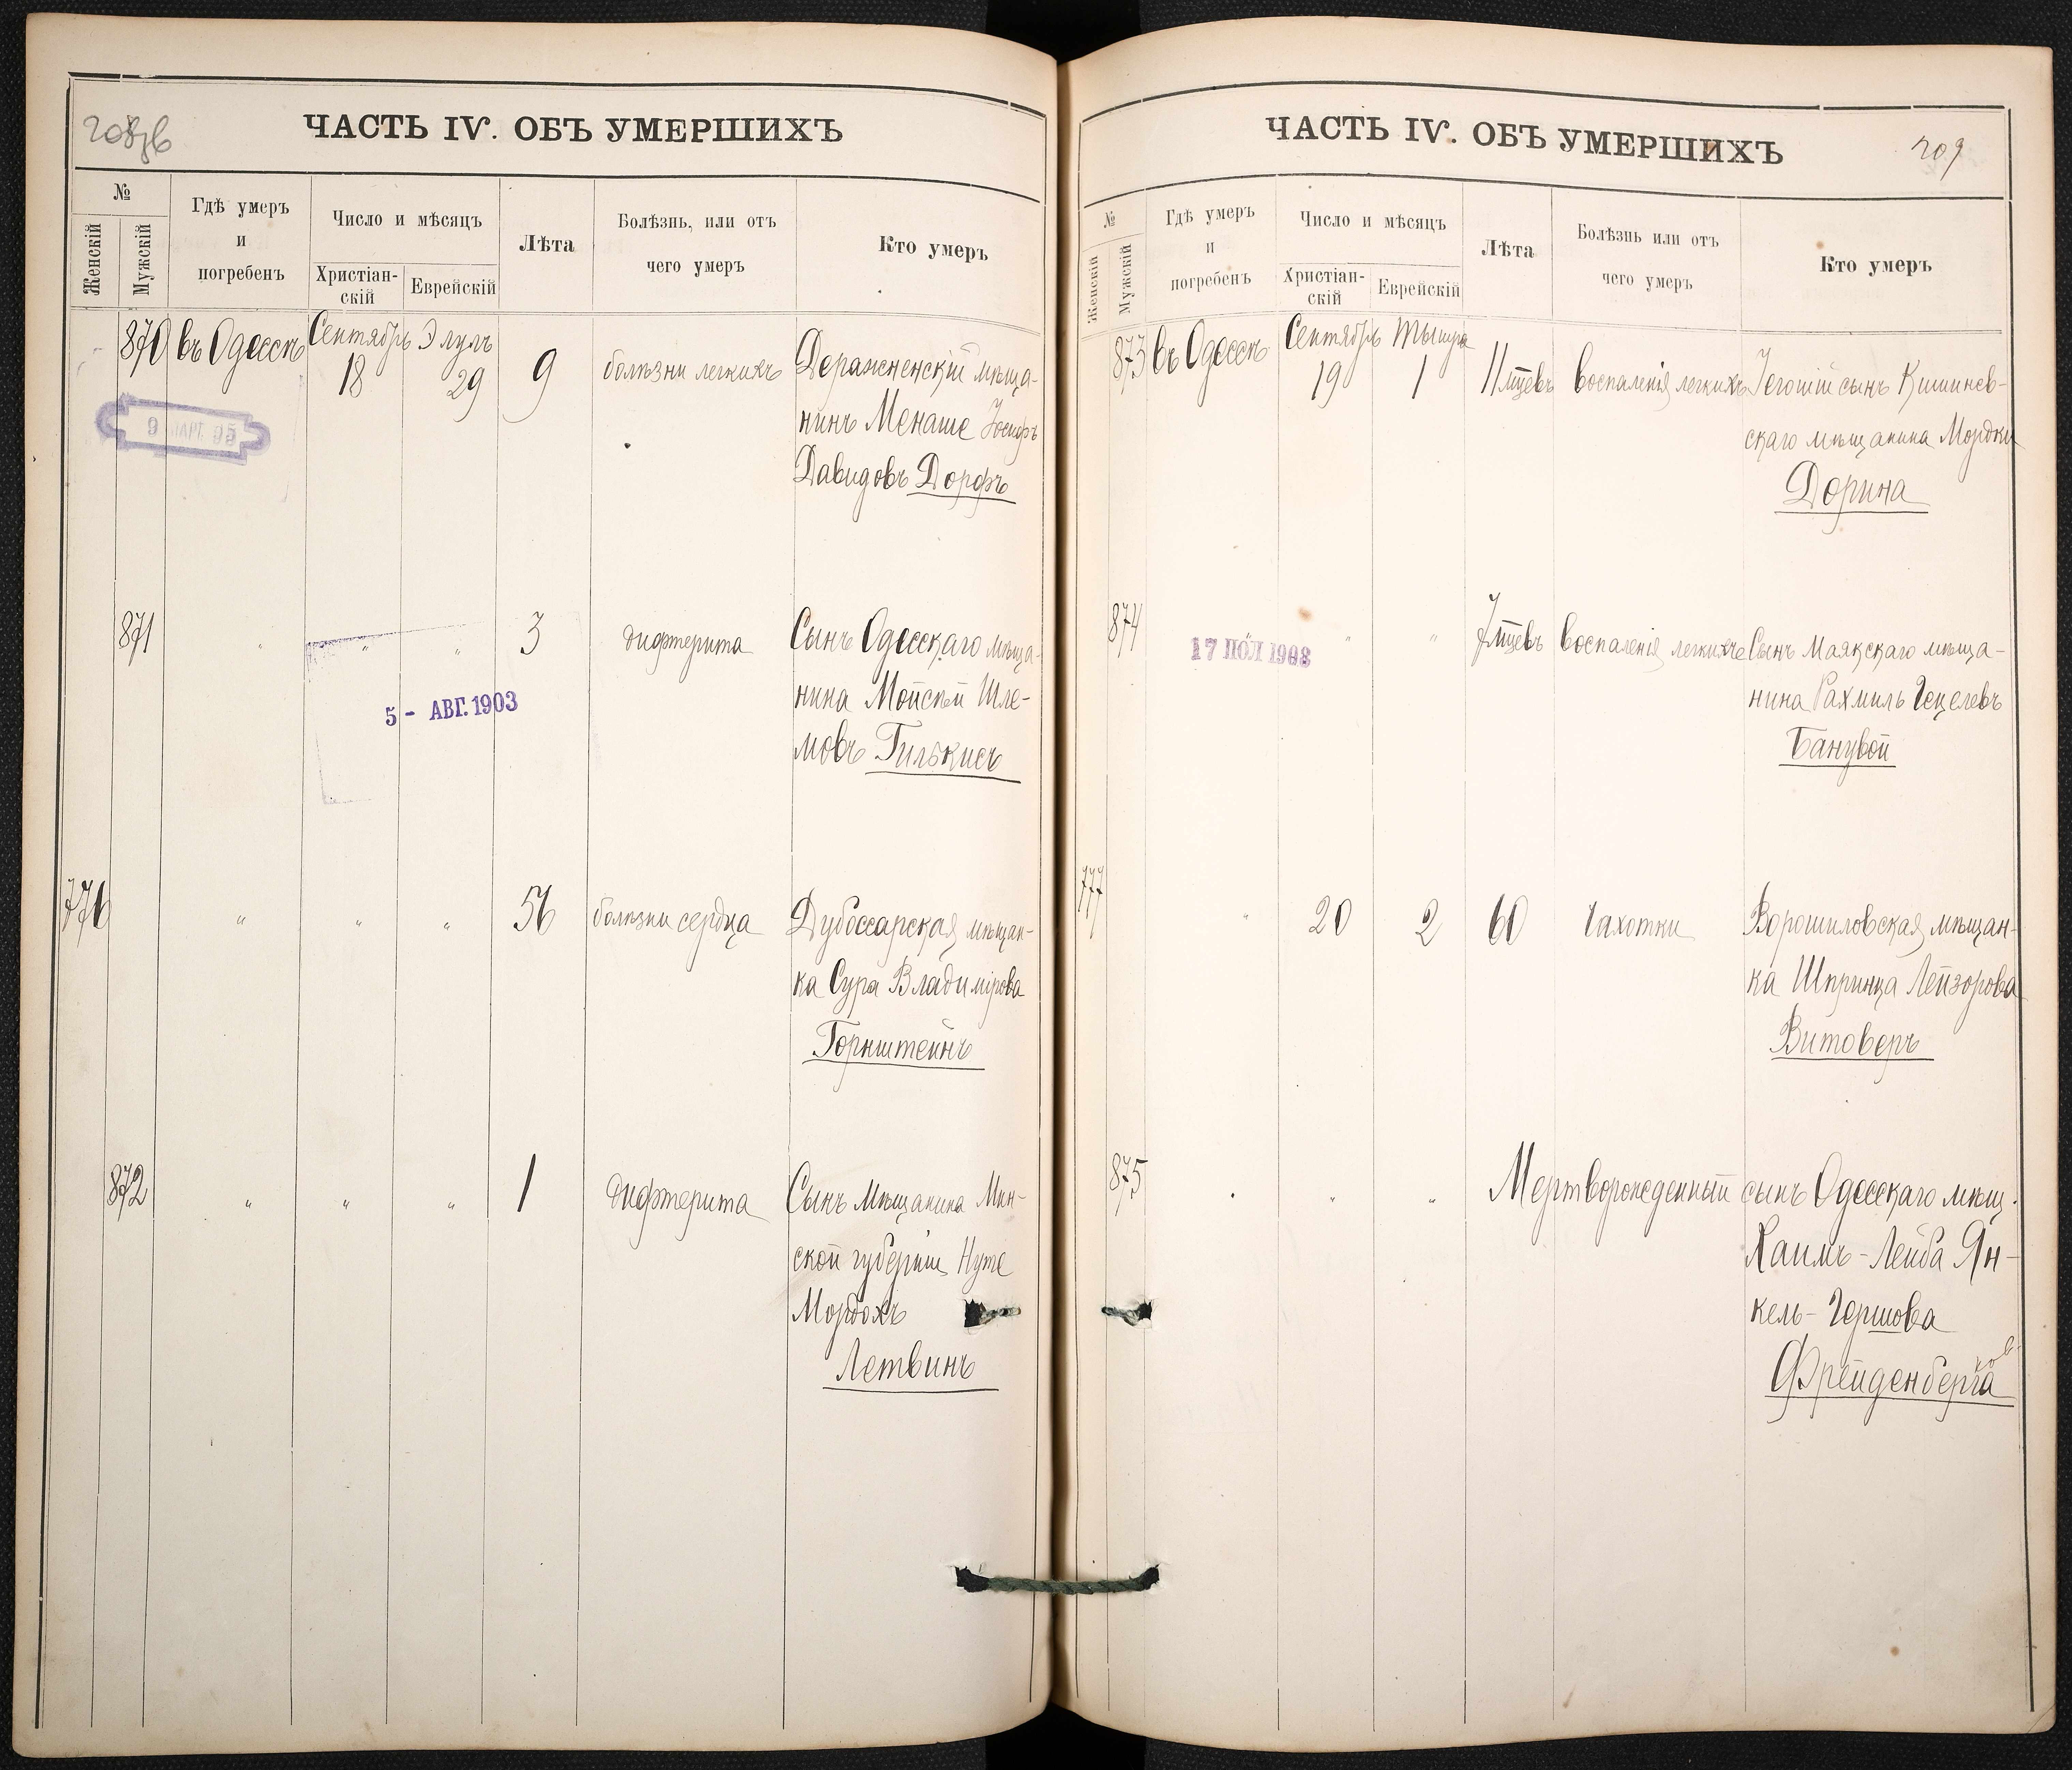 208об
ЧАСТЬ IV. ОБЪ УМЕРШИХЪ
№
Женскій
Мужскій
Гдѣ умеръ
и
погребенъ
Число и мѣсяцъ
Христіан-
скій
Еврейскій
Лѣта
Болѣзнь, или отъ
чего умеръ
Кто умеръ
870 въ Одессѣ Сентябрь 18 Элулъ 29 9 болѣзни легкихъ Деражненскій мѣща-
нинъ Менаше Іосифъ
Давидовъ Дорфъ
9 МАРТ. 95
871 " " " 3 дифтерита Сынъ Одесскаго мѣща-
нина Мойсей Шле-
мовъ Гилькисъ
5 - АВГ. 1903
776 " " " 56 болѣзни сердца Дубоссарская мѣщан-
ка Сура Владимірова
Горнштейнъ
872 " " " 1 дифтерита Сынъ мѣщанина Мин-
ской губерніи Нуте
Мордохъ
Летвинъ
ЧАСТЬ IV. ОБЪ УМЕРШИХЪ
209
№
Женскій
Мужскій
Гдѣ умеръ
и
погребенъ
Число и мѣсяцъ
Христіан-
скій
Еврейскій
Лѣта
Болѣзнь или отъ
чего умеръ
Кто умеръ
873 въ Одессѣ Сентябрь 19 Тышри 1 11 мѣцевъ воспаленія легкихъ Іегошій сынъ Кишинев-
скаго мѣщанина Мордки
Дорина
874 " " 7 мѣцевъ воспаленія легкихъ Сынъ Маякскаго мѣща-
нина Рахмиль Гецелевъ
Банувой
17 ІЮЛ 1908
777 " 20 2 60 чахотки Ворошиловская мѣщан-
ка Шпринца Лейзорова
Витоверъ
875 " " " Мертворожденный сынъ Одесскаго мѣщ.
Хаимъ-Лейба Ян-
кель-Гершова
Фрейденберга